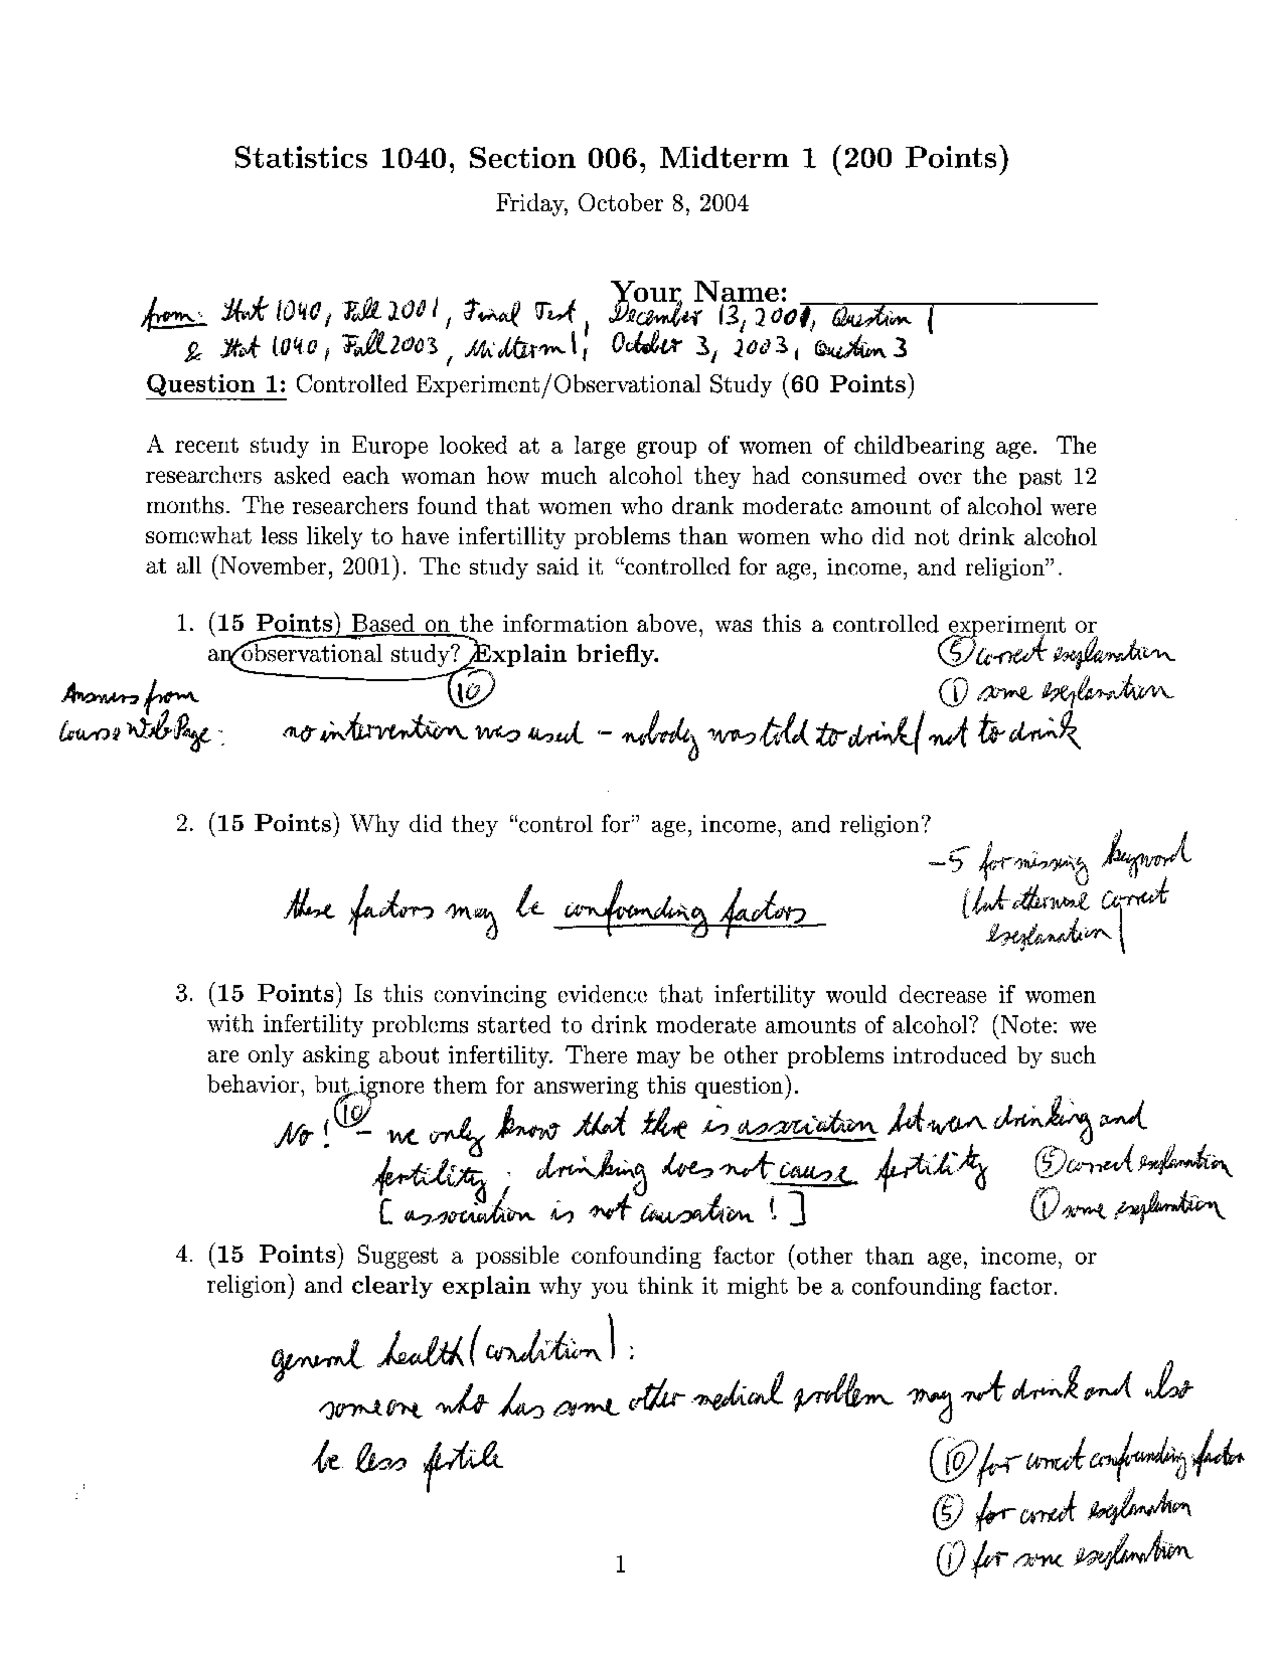 Statistics 1040, Section 006, Midterm 1 (200 Points)
Friday, October 8, 2004
Your Name:
from: Stat 1040, Fall 2001, Final Test, December 13, 2001, Question 1
& Stat 1040, Fall 2003, Midterm 1, October 3, 2003, Question 3
Question 1: Controlled Experiment/Observational Study (60 Points)
A recent study in Europe looked at a large group of women of childbearing age. The
researchers asked each woman how much alcohol they had consumed over the past 12
months. The researchers found that women who drank moderate amount of alcohol were
somewhat less likely to have infertillity problems than women who did not drink alcohol
at all (November, 2001). The study said it “controlled for age, income, and religion”.
1. (15 Points) Based on the information above, was this a controlled experiment or
an observational study? Explain briefly.
(5) correct explanation
(10)
(1) some explanation
Answers from
Course Web Page:
no intervention was used – nobody was told to drink / not to drink
2. (15 Points) Why did they “control for” age, income, and religion?
-5 for missing keyword
(but otherwise correct
explanation)
these factors may be confounding factors
3. (15 Points) Is this convincing evidence that infertility would decrease if women
with infertility problems started to drink moderate amounts of alcohol? (Note: we
are only asking about infertility. There may be other problems introduced by such
behavior, but ignore them for answering this question).
No! (10) – we only know that there is association between drinking and
fertility; drinking does not cause fertility
(5) correct explanation
[association is not causation!]
(1) some explanation
4. (15 Points) Suggest a possible confounding factor (other than age, income, or
religion) and clearly explain why you think it might be a confounding factor.
general health (condition):
someone who has some other medical problem may not drink and also
be less fertile
(10) for correct confounding factor
(5) for correct explanation
(1) for some explanation
1